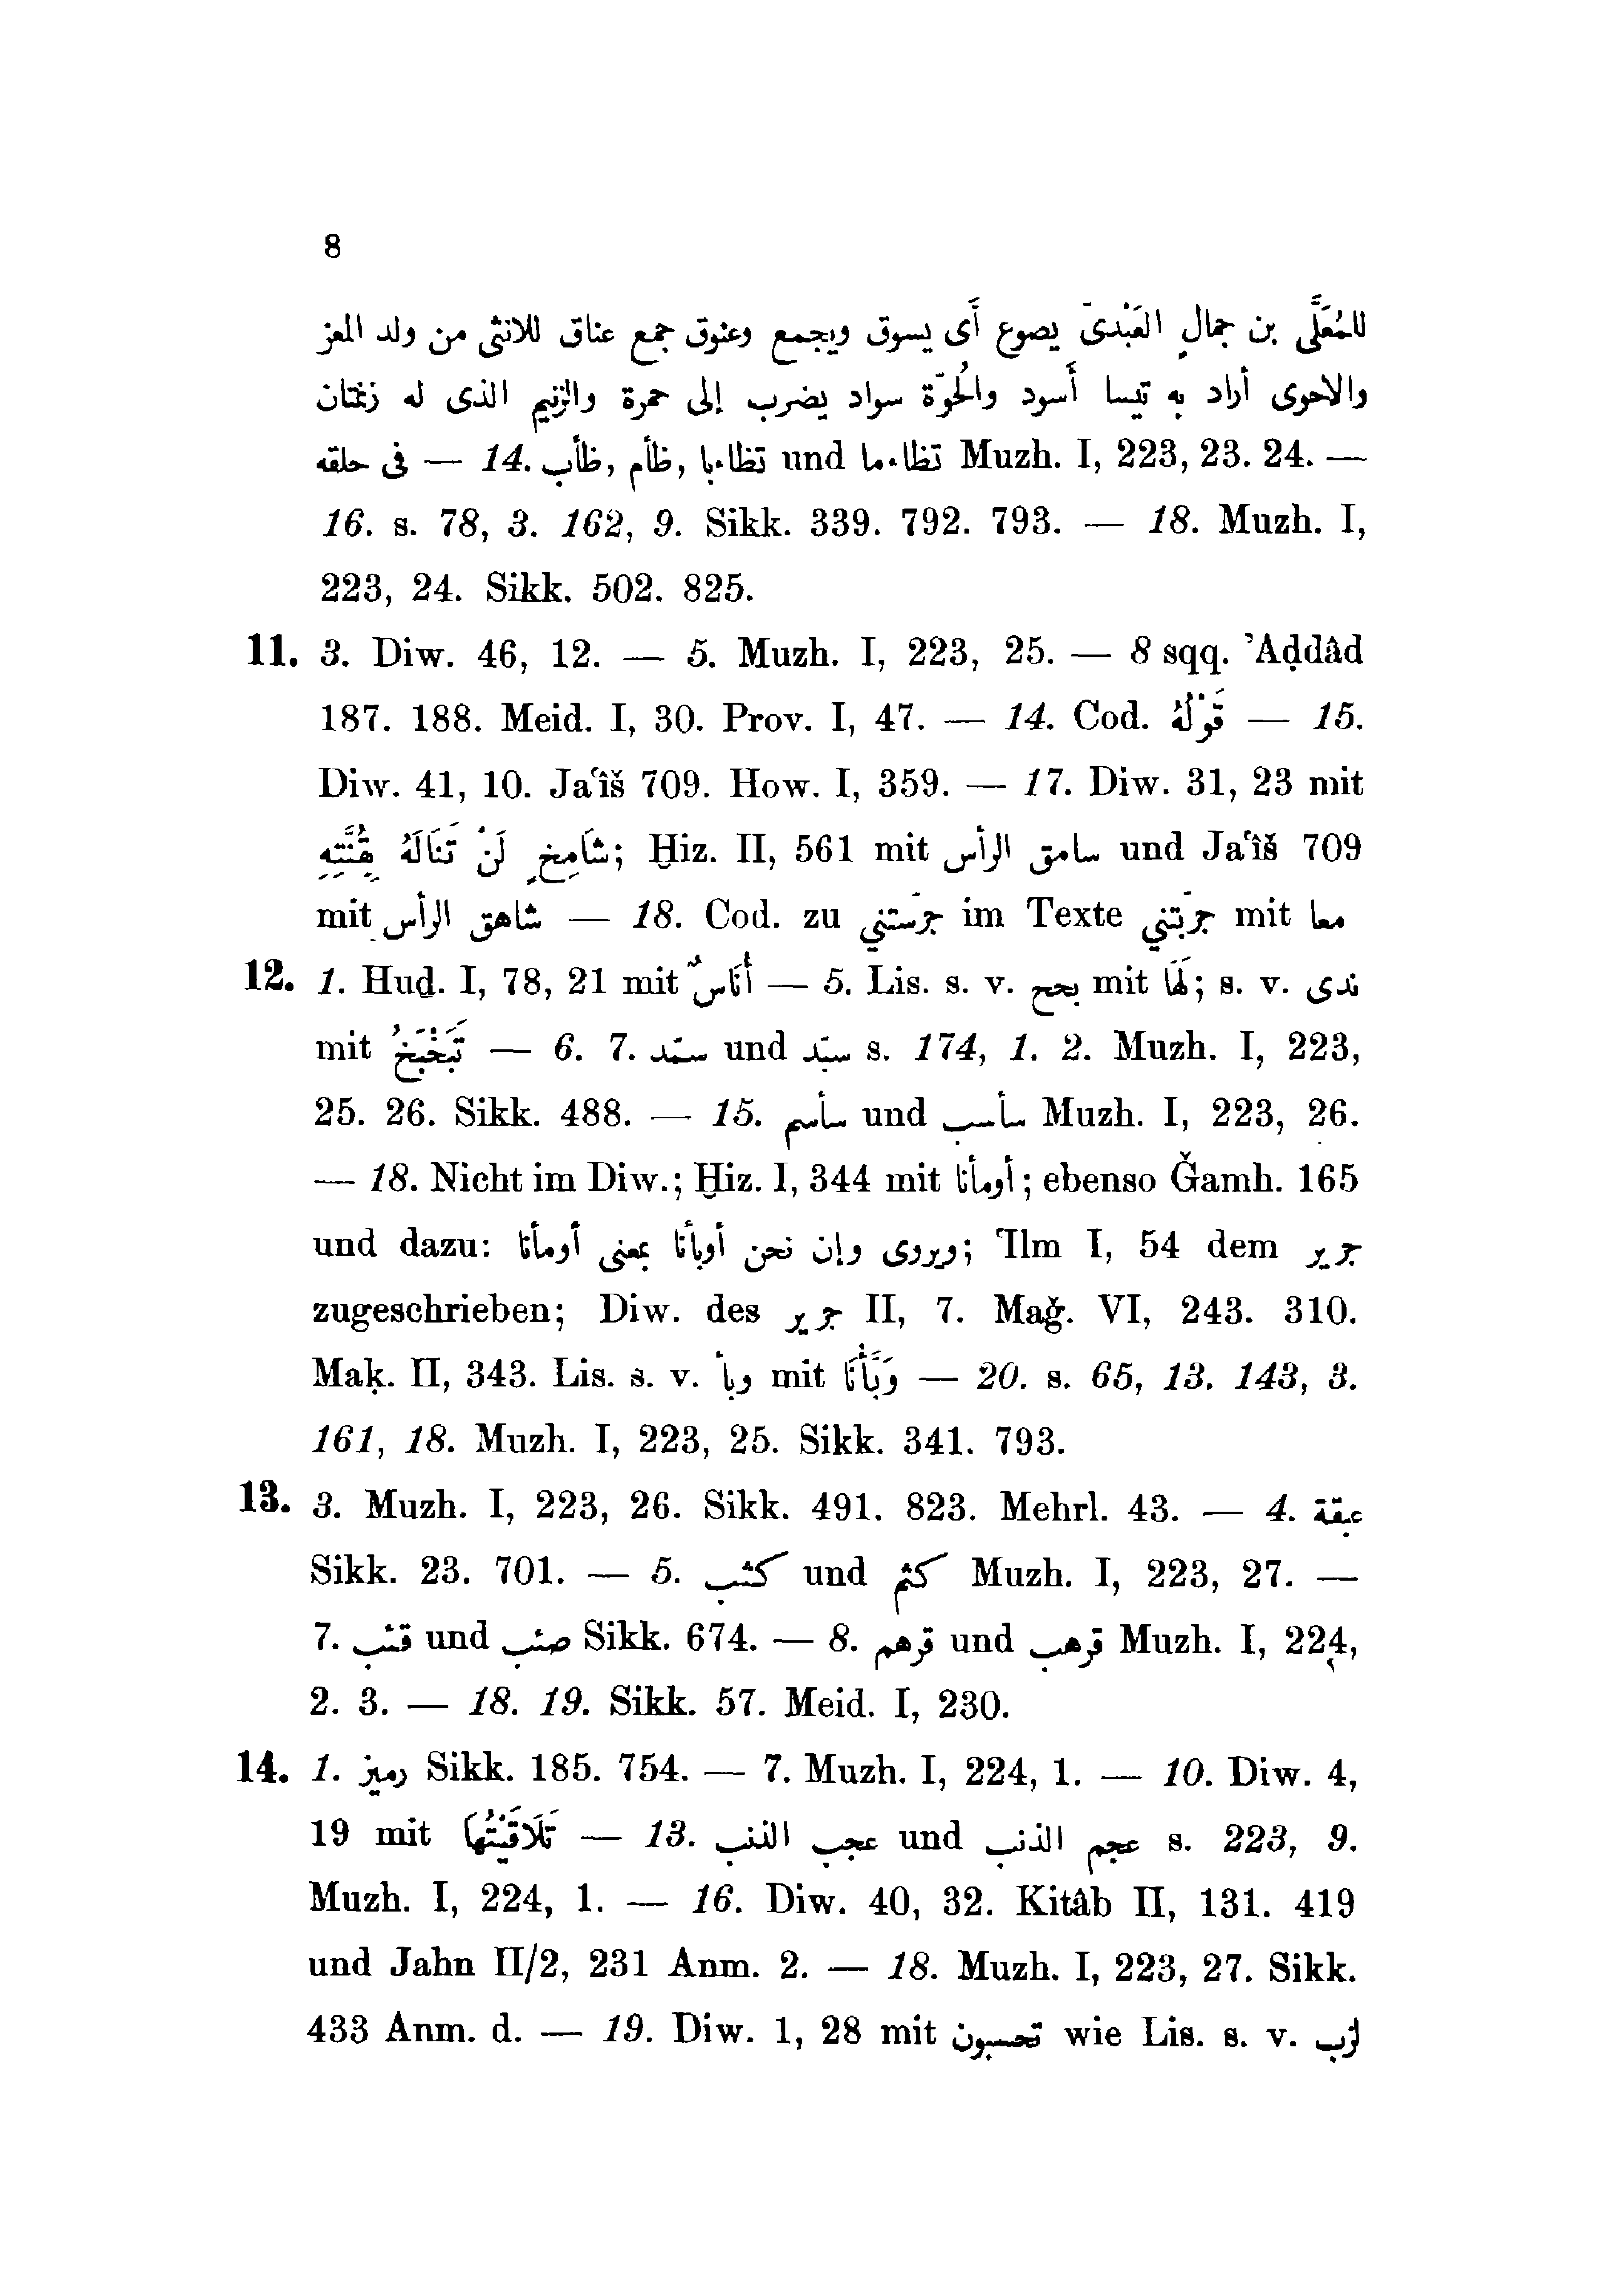 8
للمُعَلَّى بن جمالٍ العَبْدىّ يصوع أَى يسوق ويجمع وعنوق جمع عناق للانثى من ولد المعز
والاحوى أراد به تيسا أَسود والحُوّة سواد يضرب إلى حمرة والزنيم الذى له زنمتان
فى حلقه — 14. ظأب, ظأم, تظاءبا und تظاءما Muzh. I, 223, 23. 24. —
16. s. 78, 3. 162, 9. Sikk. 339. 792. 793. — 18. Muzh. I,
223, 24. Sikk. 502. 825.
11. 3. Diw. 46, 12. — 5. Muzh. I, 223, 25. — 8 sqq. ’Aḍdâd
187. 188. Meid. I, 30. Prov. I, 47. — 14. Cod. قَوْلُهُ — 15.
Diw. 41, 10. Jaʿîš 709. How. I, 359. — 17. Diw. 31, 23 mit
شَامِخٍ لَنْ تَنَالَهُ بِقُنَّتِهِ; Ḫiz. II, 561 mit سامق الرأس und Jaʿîš 709
mit شاهق الرأس — 18. Cod. zu جرّستني im Texte جرّبتني mit معا
12. 1. Huḏ. I, 78, 21 mit أُنَاسٌ — 5. Lis. s. v. بحح mit لَهَا; s. v. ندى
mit تَبَخْبَخُ — 6. 7. سمّد und سبّد s. 174, 1. 2. Muzh. I, 223,
25. 26. Sikk. 488. — 15. سأسم und سأسب Muzh. I, 223, 26.
— 18. Nicht im Diw.; Ḫiz. I, 344 mit أومأنا; ebenso Ǧamh. 165
und dazu: ويروى وإن نحن أوبأنا بمعنى أومأنا; ʿIlm I, 54 dem جرير
zugeschrieben; Diw. des جرير II, 7. Maǧ. VI, 243. 310.
Maḳ. II, 343. Lis. s. v. وبأ mit وَبَّأْنَا — 20. s. 65, 13. 143, 3.
161, 18. Muzh. I, 223, 25. Sikk. 341. 793.
13. 3. Muzh. I, 223, 26. Sikk. 491. 823. Mehrl. 43. — 4. عبقة
Sikk. 23. 701. — 5. كثب und كثم Muzh. I, 223, 27. —
7. قئب und صئب Sikk. 674. — 8. قرهم und قرهب Muzh. I, 224,
2. 3. — 18. 19. Sikk. 57. Meid. I, 230.
14. 1. رميز Sikk. 185. 754. — 7. Muzh. I, 224, 1. — 10. Diw. 4,
19 mit تَلَاقَيْتُهَا — 13. عجب الذنب und عجم الذنب s. 223, 9.
Muzh. I, 224, 1. — 16. Diw. 40, 32. Kitâb II, 131. 419
und Jahn II/2, 231 Anm. 2. — 18. Muzh. I, 223, 27. Sikk.
433 Anm. d. — 19. Diw. 1, 28 mit تحسبون wie Lis. s. v. لزب